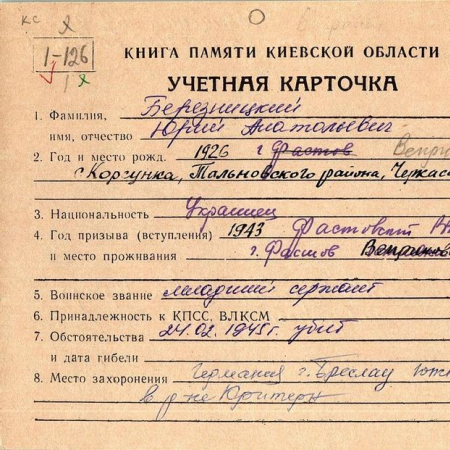 кс
1-126
КНИГА ПАМЯТИ КИЕВСКОЙ ОБЛАСТИ
УЧЕТНАЯ КАРТОЧКА
1. Фамилия, Березницкий
имя, отчество Юрий Анатольевич
2. Год и место рожд. 1926 г. Фастов
с. Коржунка, Тальновского района, Черкас
3. Национальность Украинец
4. Год призыва (вступления) 1943 Фастовский
и место проживания г. Фастов
5. Воинское звание младший сержант
6. Принадлежность к КПСС, ВЛКСМ
7. Обстоятельства 24.02.1945 г. убит
и дата гибели
8. Место захоронения Германия г. Бреслау
в р-не